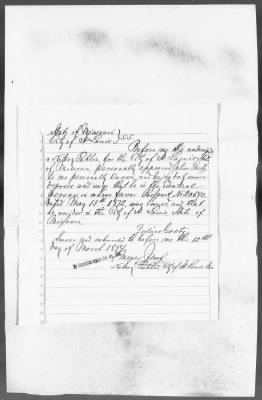 State of Missouri } S.S.
City of St Louis
Before me the undersigned
a Notary Public for the City of St Louis State
of Missouri personally appeared Julius
to me personally known, and being duly sworn
deposes and says that he is the identical
person in whose favor Passport No
dated May 18th 1872, was issued and that
he resides in the City of St Louis State of
Missouri.
Julius
Sworn and subscribed to before me this 12th
day of March
Notary Public, City of St Louis Mo